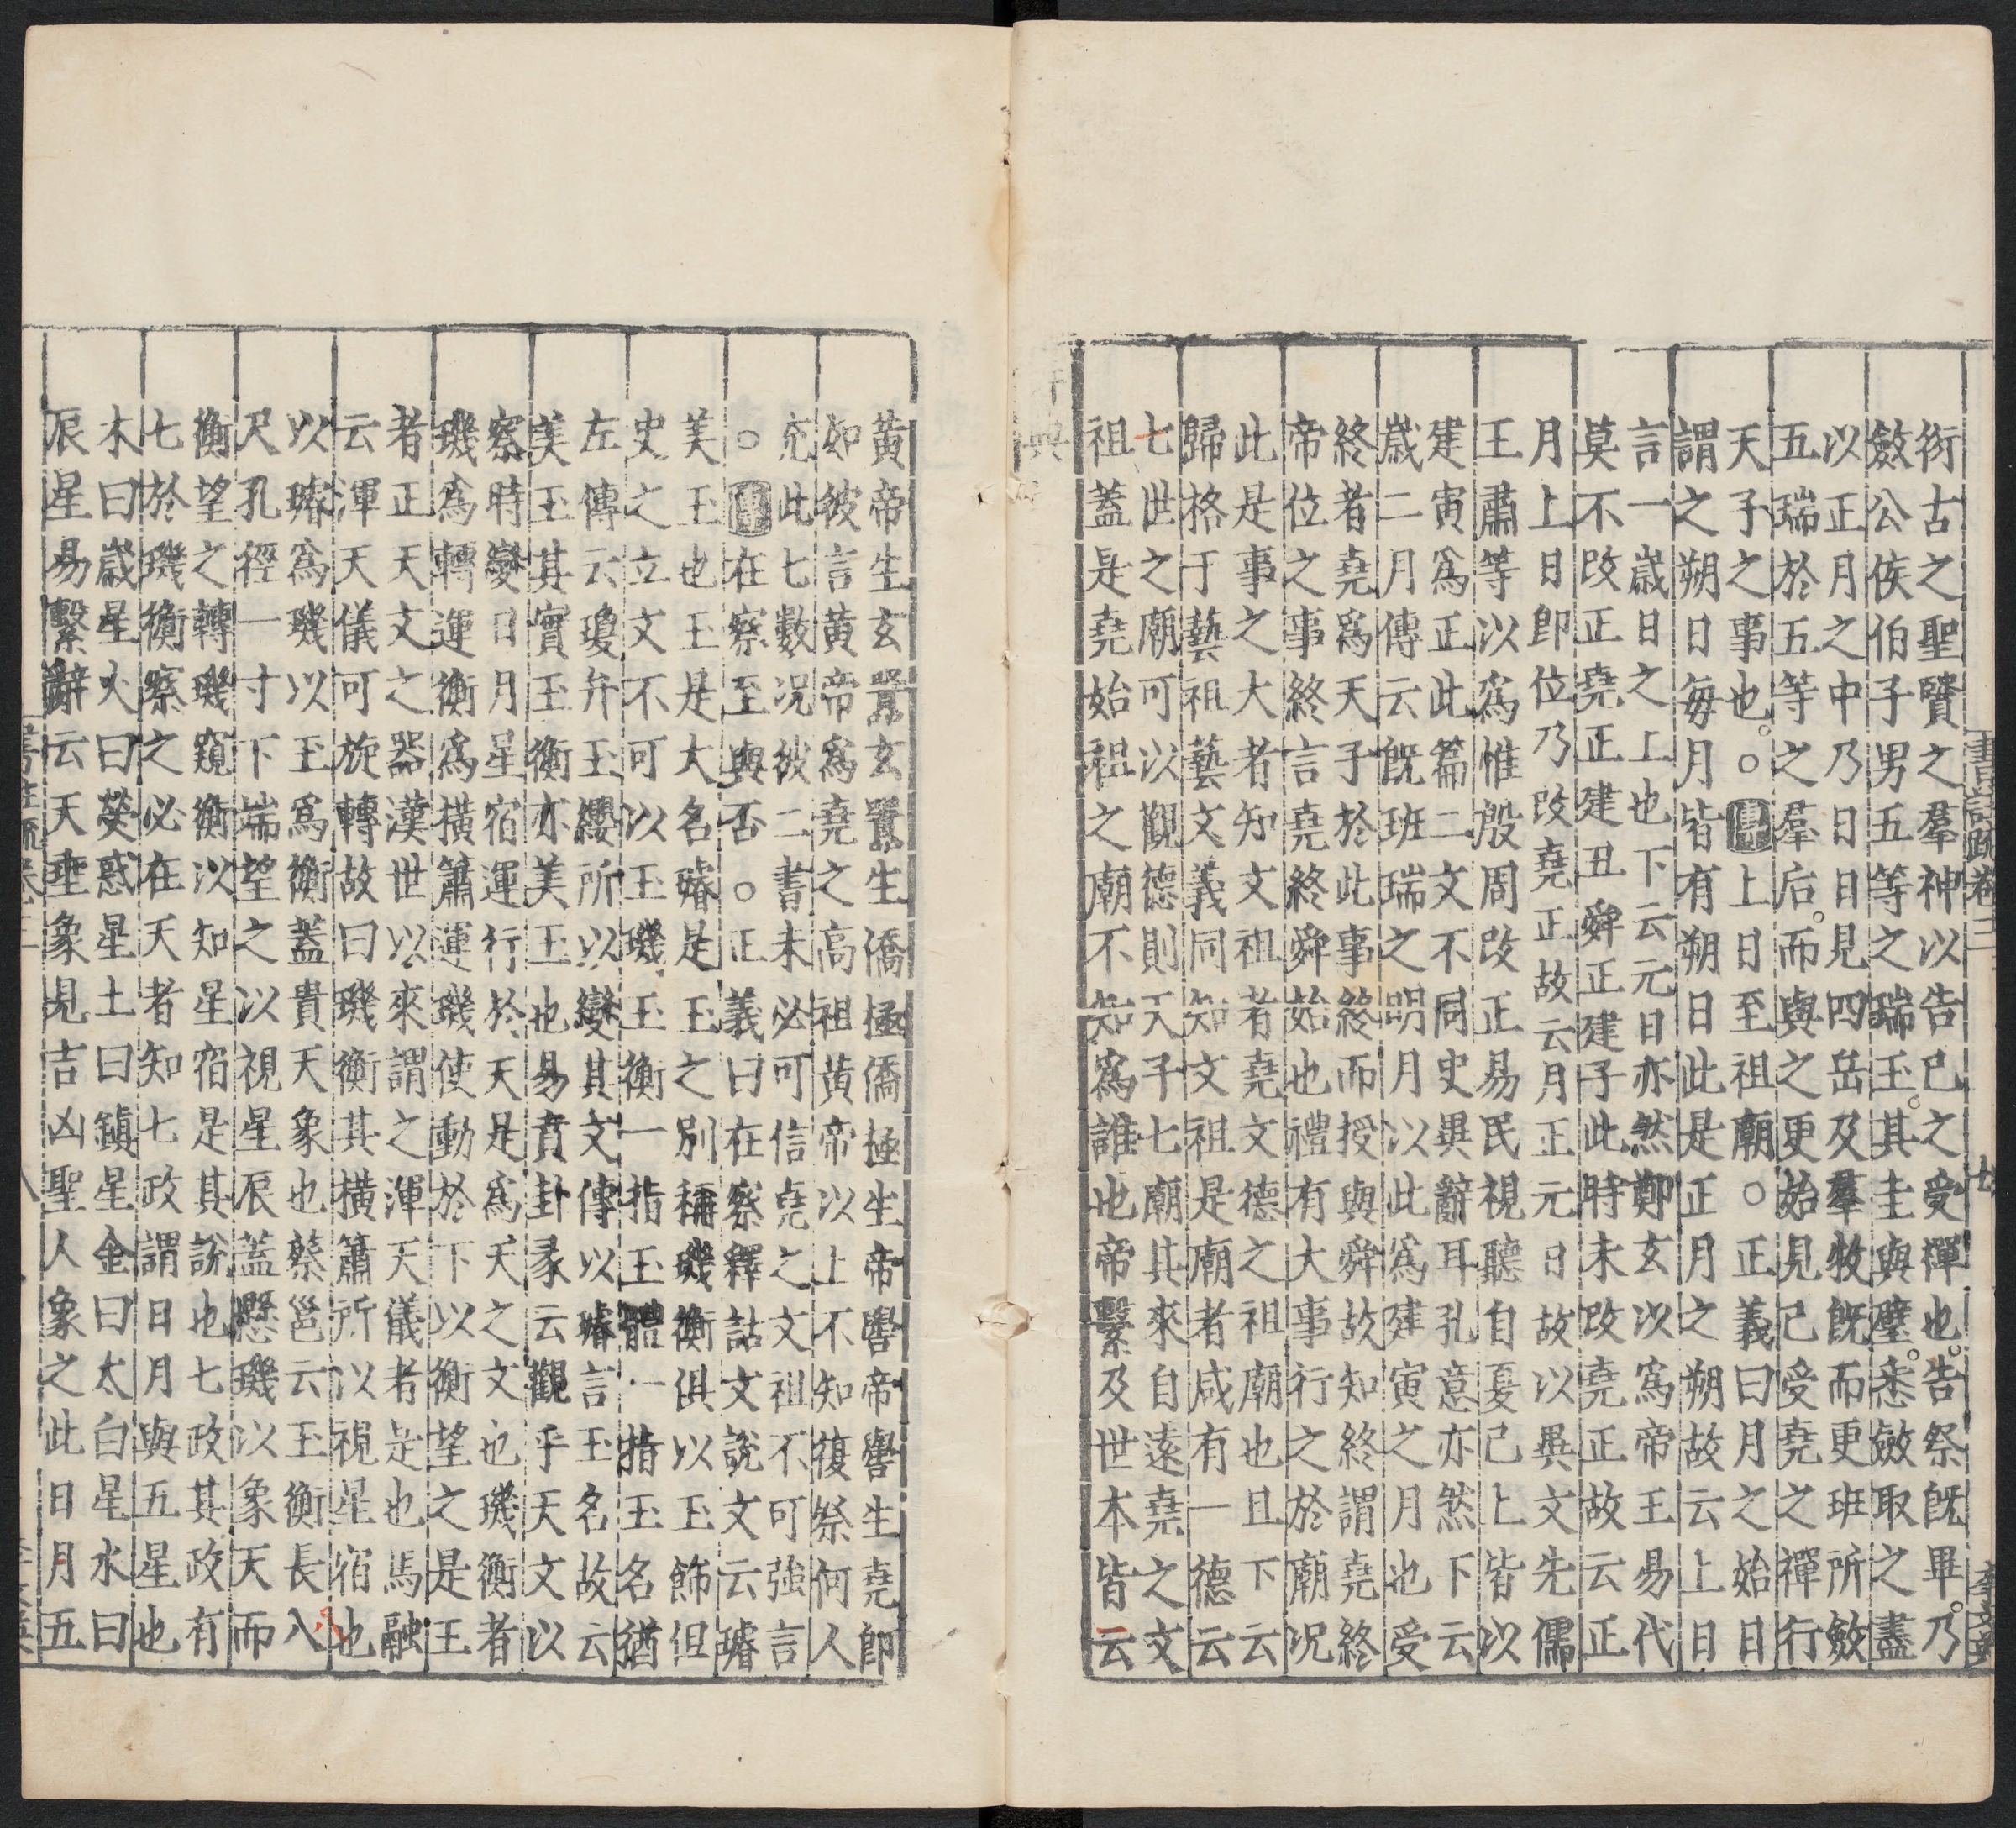 衍古之聖賢之羣神以告己之受禪也告祭旣畢乃
斂公侯伯子男五等之瑞玉其圭與璧悉斂取之盡
以正月之中乃日日見四岳及羣牧旣而更班所斂
五瑞於五等之羣后而與之更始見己受堯之禪行
天子之事也○傳上日至祖廟○正義曰月之始日
謂之朔日每月皆有朔日此是正月之朔故云上日
言一歲日之上也下云元日亦然鄭玄以爲帝王易代
莫不改正堯正建丑舜正建子此時未改堯正故云正
月上日卽位乃改堯正故云月正元日故以異文先儒
王肅等以爲惟殷周改正易民視聽自夏已上皆以
建寅爲正此篇二文不同史異辭耳孔意亦然下云
歲二月傳云旣班瑞之明月以此爲建寅之月也受
終者堯爲天子於此終事終而授與舜故知終謂堯終
帝位之事終言堯終舜始也禮有大事行之於廟况
此是事之大者知文祖者堯文德之祖廟也且下云
歸格于藝祖藝文義同知文祖是廟者咸有一德云
七世之廟可以觀德則天子七廟其來自遠堯之文
祖蓋是堯始祖之廟不知爲誰也帝繫及世本皆云
黄帝生玄囂玄囂生僑極僑極生帝嚳帝嚳生堯卽
如彼言黄帝爲堯之高祖黄帝以上不知復祭何人
充此七數况彼二書未必可信堯之文祖不可強言
○傳在察至與否○正義曰在察釋詁文說文云璿
美玉也玉是大名璿是玉之別稱璣衡俱以玉飾但
史之立文不可以玉璣玉衡一指玉體一指玉名猶
左傳云瓊弁玉纓所以變其文傳以璿言玉名故云
美玉其實玉衡亦美玉也易賁卦彖云觀乎天文以
察時變日月星宿運行於天是爲天之文也璣衡者
璣爲轉運衡爲橫簫運璣使動於下以衡望之是王
者正天文之器漢世以來謂之渾天儀者是也馬融
云渾天儀可旋轉故曰璣衡其橫簫所以視星宿也
以璿爲璣以玉爲衡蓋貴天象也蔡邕云玉衡長八
尺孔徑一寸下端望之以視星辰蓋懸璣以象天而
衡望之轉璣窺衡以知星宿是其說也七政其政有
七於璣衡察之必在天者知七政謂日月與五星也
木曰歲星火曰熒惑星土曰鎭星金曰太白星水曰
辰星易繫辭云天垂象見吉凶聖人象之此日月五